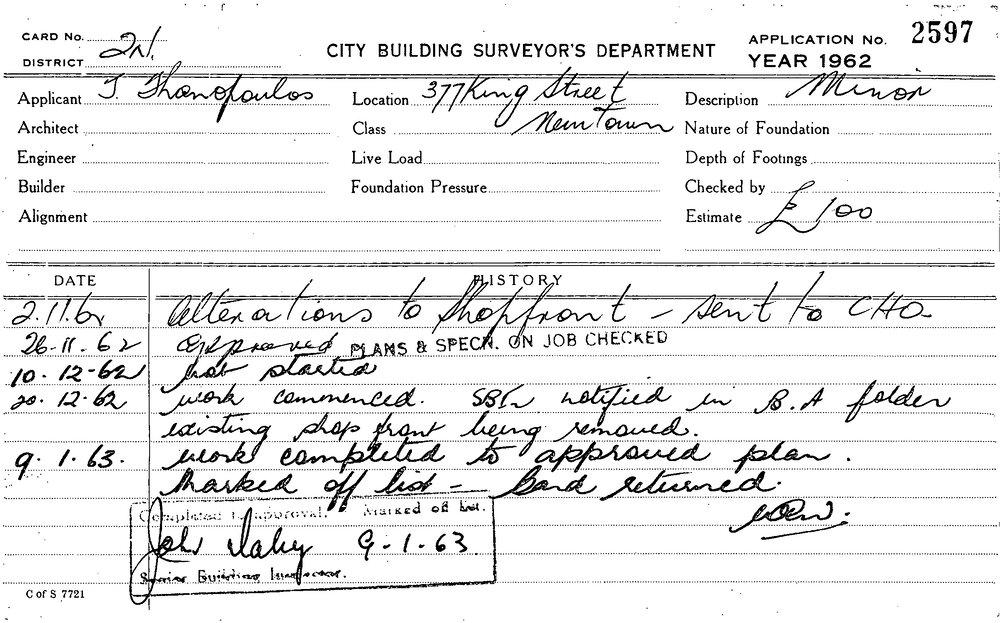 CARD No. 2N. CITY BUILDING SURVEYOR'S DEPARTMENT APPLICATION No. 2597
DISTRICT YEAR 1962
Applicant T. Thanopoulos Location 377 King Street Description Minor
Architect Class Newtown Nature of Foundation
Engineer Live Load Depth of Footings
Builder Foundation Pressure Checked by
Alignment Estimate £100
DATE HISTORY
2.11.62 Alterations to Shopfront - sent to CHO
26-11-62 Approved PLANS & SPECN. ON JOB CHECKED
10-12-62 not started
20.12.62 work commenced. notified in B.A folder
existing shop front being removed.
9.1.63. work completed to approved plan.
Marked off list - Card returned.
Completed to approval. Marked off list.
John 9-1-63.
Senior Building Inspector.
C of S 7721